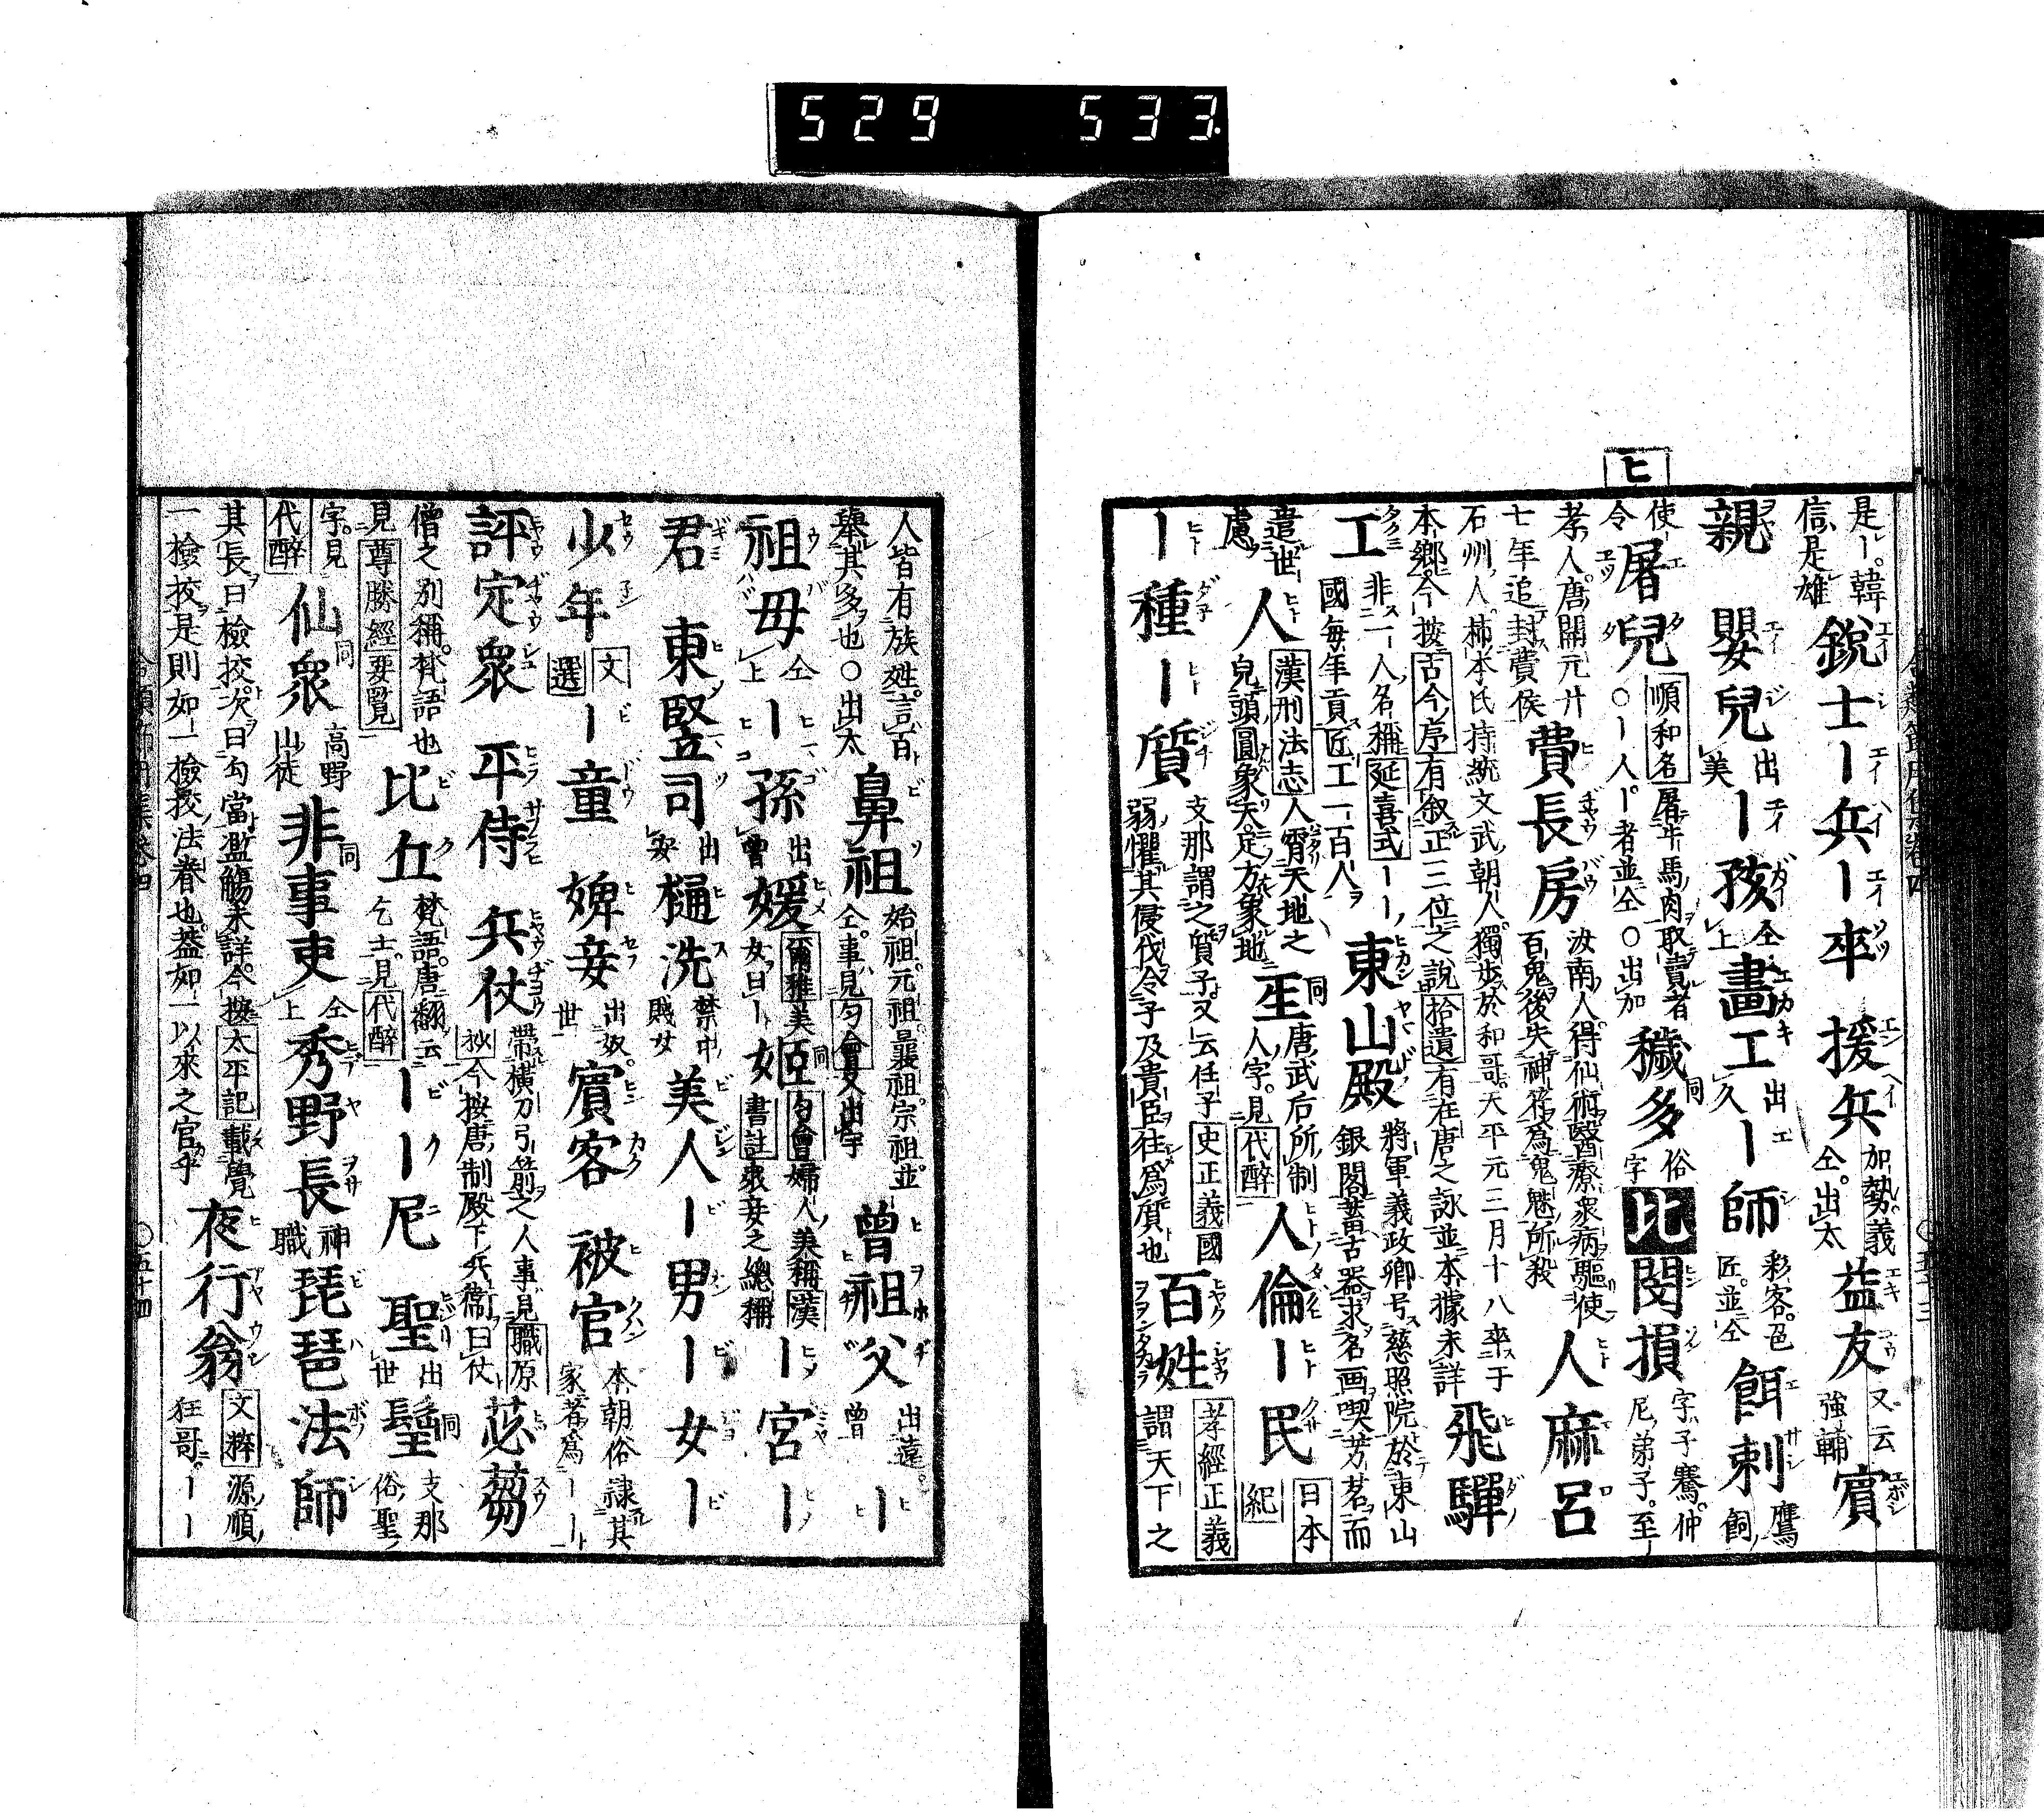 529 533
ヒ
是ー。韓信是雄 鋭士ー兵ー卒 援兵 加勢義仝。出太 益友 又云強輔 賓
親 嬰兒 出美 ー孩 仝上 畫工 出久 ー師 彩客。邑匠。並仝 餌刺 鷹飼
使ー令 屠兒 順和名 屠牛馬肉取賣者 〇ー人。ー者並仝 〇出加 穢多 俗字 比 閔損 字子騫。仲尼弟子。至
孝人。唐開元廿七年追封費侯 費長房 汝南人得仙術醫療衆病驅使百鬼後失神符為鬼魅所殺 人麻呂
石州人。柿本氏持統文武朝人。獨歩於和哥。天平元三月十八卒于本郷。今按 古今序 有叙正三位之説 拾遺 有在唐之詠並本據未詳 飛驒
工 非一人名稱 延喜式ーー國毎年貢匠工一百人 東山殿 將軍義政卿号慈照院於東山銀閣蓄古器求名画喫芳茗而
遣世慮 人 漢刑法志 人霄天地之皃頭圓象天。定方象地 𤯔 唐武后所制人字。見 代醉 人倫ー民 日本紀
ー種ー質 支那謂之質子。又云任子 史正義 國弱懼其侵伐令子及貴臣往為質也 百姓 孝經正義 謂天下之
人皆有族姓。言百舉其多也〇出太 鼻祖 始祖。元祖。曩祖。宗祖。並仝。事見 匀會 又出字 曾祖父 出遠。曾 ー
祖母 仝上 ー孫 出曾 媛 爾雅 美女曰ー 妃 匀會 婦人美稱 漢書註 衆妾之總稱 ー宮ー
君 東豎司 出安 樋洗 禁中賎女 美人ー男ー女ー
少年 文選 ー童 婢妾 出奴。世 賓客 被官 本朝俗隷其家者為ーー
評定衆 平侍 兵仗 帶橫刀弓箭之人事見 職原抄 今按唐制殿下兵衛曰仗 苾蒭
僧之別稱。梵語也見 尊勝經要覧 比丘 梵語。唐翻云乞士。見 代醉 ーー尼 聖 出世 𦗟 支那俗聖
字。見 代醉 仙衆 高野山徒 非事吏 仝上 秀野長 神職 琵琶法師
其長曰檢挍。次曰勾當濫觴未詳。今按 太平記 載覺一檢挍是則如一檢挍法眷也。葢如一以來之官乎 夜行翁 文粹 源順狂哥。ーー
五十四